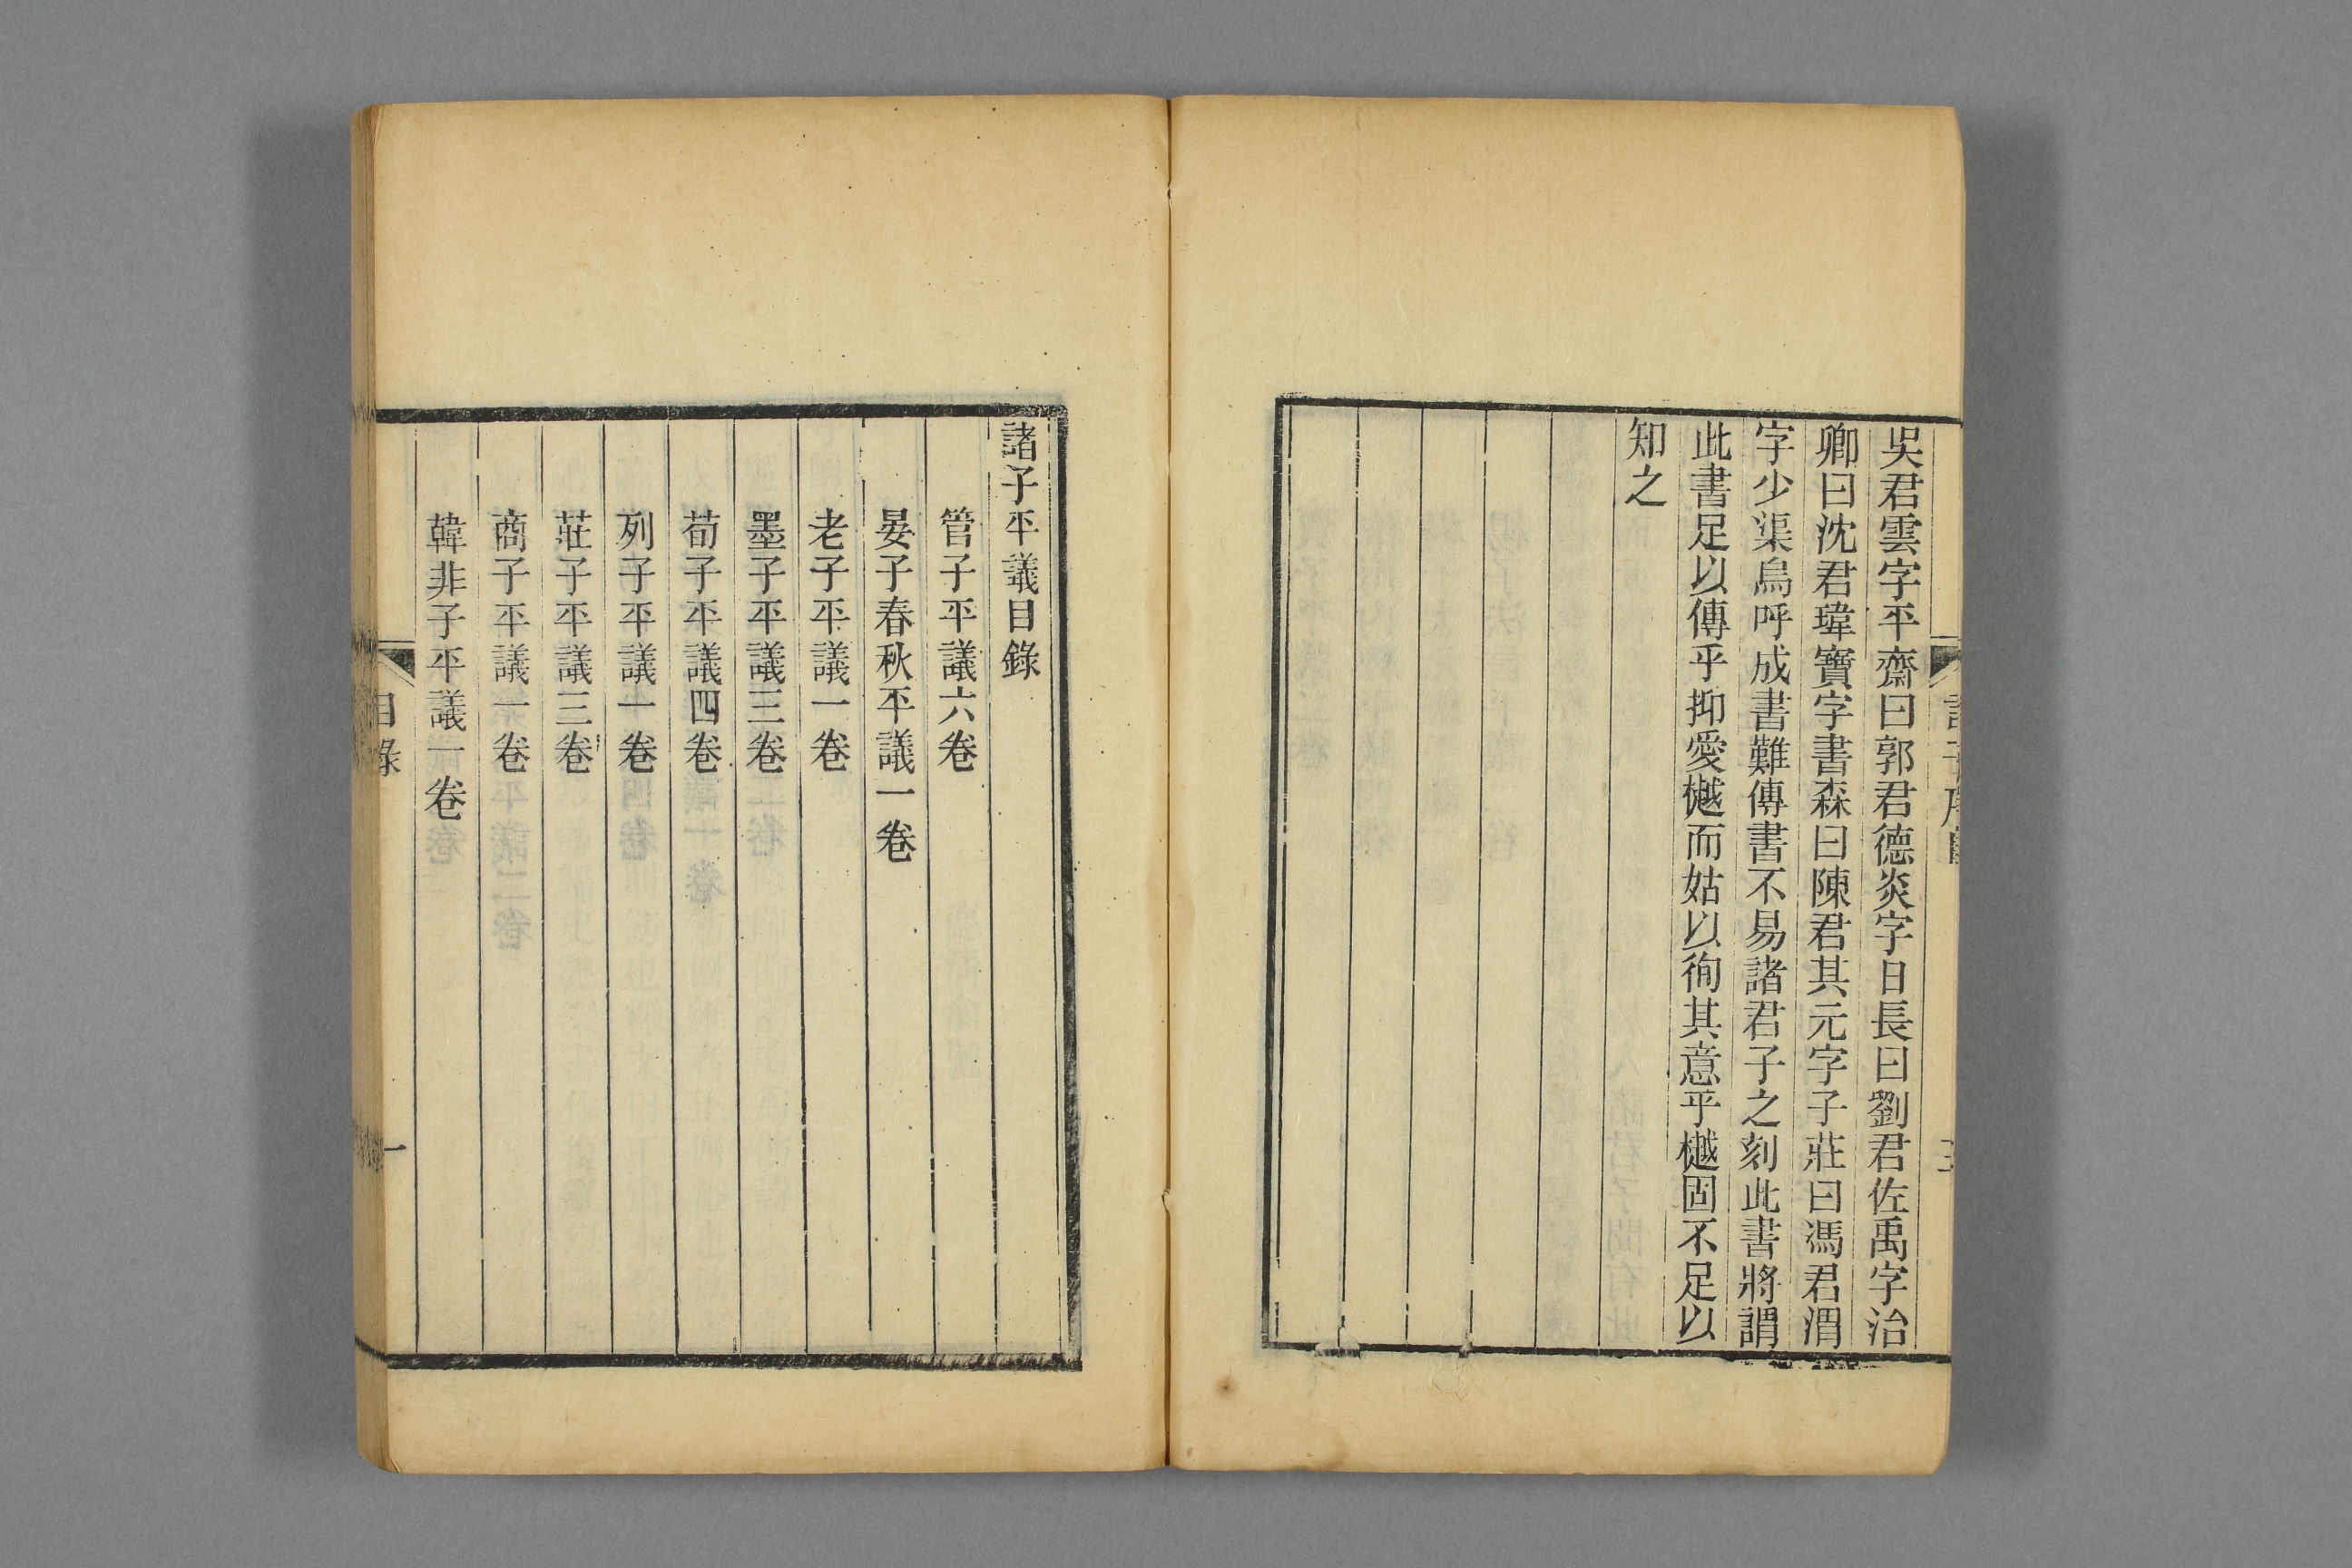 吳君雲字平齋曰郭君德炎字日長曰劉君佐禹字治
卿曰沈君瑋寶字書森曰陳君其元字子莊曰馮君渭
字少渠烏呼成書難傳書不易諸君子之刻此書將謂
此書足以傳乎抑愛樾而姑以徇其意乎樾固不足以
知之
諸子平議目錄
管子平議六卷
晏子春秋平議一卷
老子平議一卷
墨子平議三卷
荀子平議四卷
列子平議一卷
莊子平議三卷
商子平議一卷
韓非子平議一卷
目錄
一